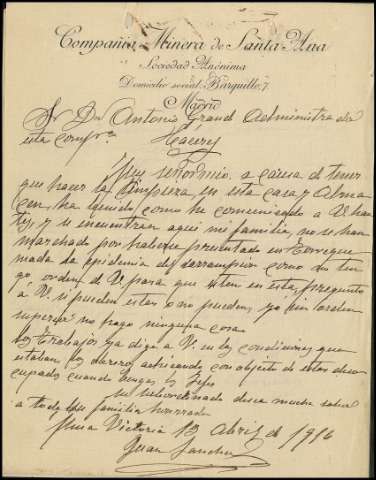 Compañia Minera de Santa Ana
Sociedad Anónima
Domicilio social: Barquillo, 7
Madrid
Sr Dn Antonio Grand Administrador
esta compª Cáceres
Muy señor mio, a causa de tener
que hacer la limpieza, en esta casa y Alma
cen, ha venido, como he comunicado a V. han
y se encuentran aqui mi familia, no se han
marchado por haberse presentado en Torreque
mada la Epidemia del sarrampion como no ten
go, orden, de V. para que esten en esta, pregunto
a V. si pueden estar o no pueden, yo sin orden
superior no hago ninguna cosa
Los trabajos ya dige a V. en las condiciones que
estaban, los obreros con objeto de estar deso
cupados cuando vengas los Jefes
su subordinado desea mucha salud
a toda su familia honrada
Mina Victoria 13 Abril de 1916
Juan Sanchez